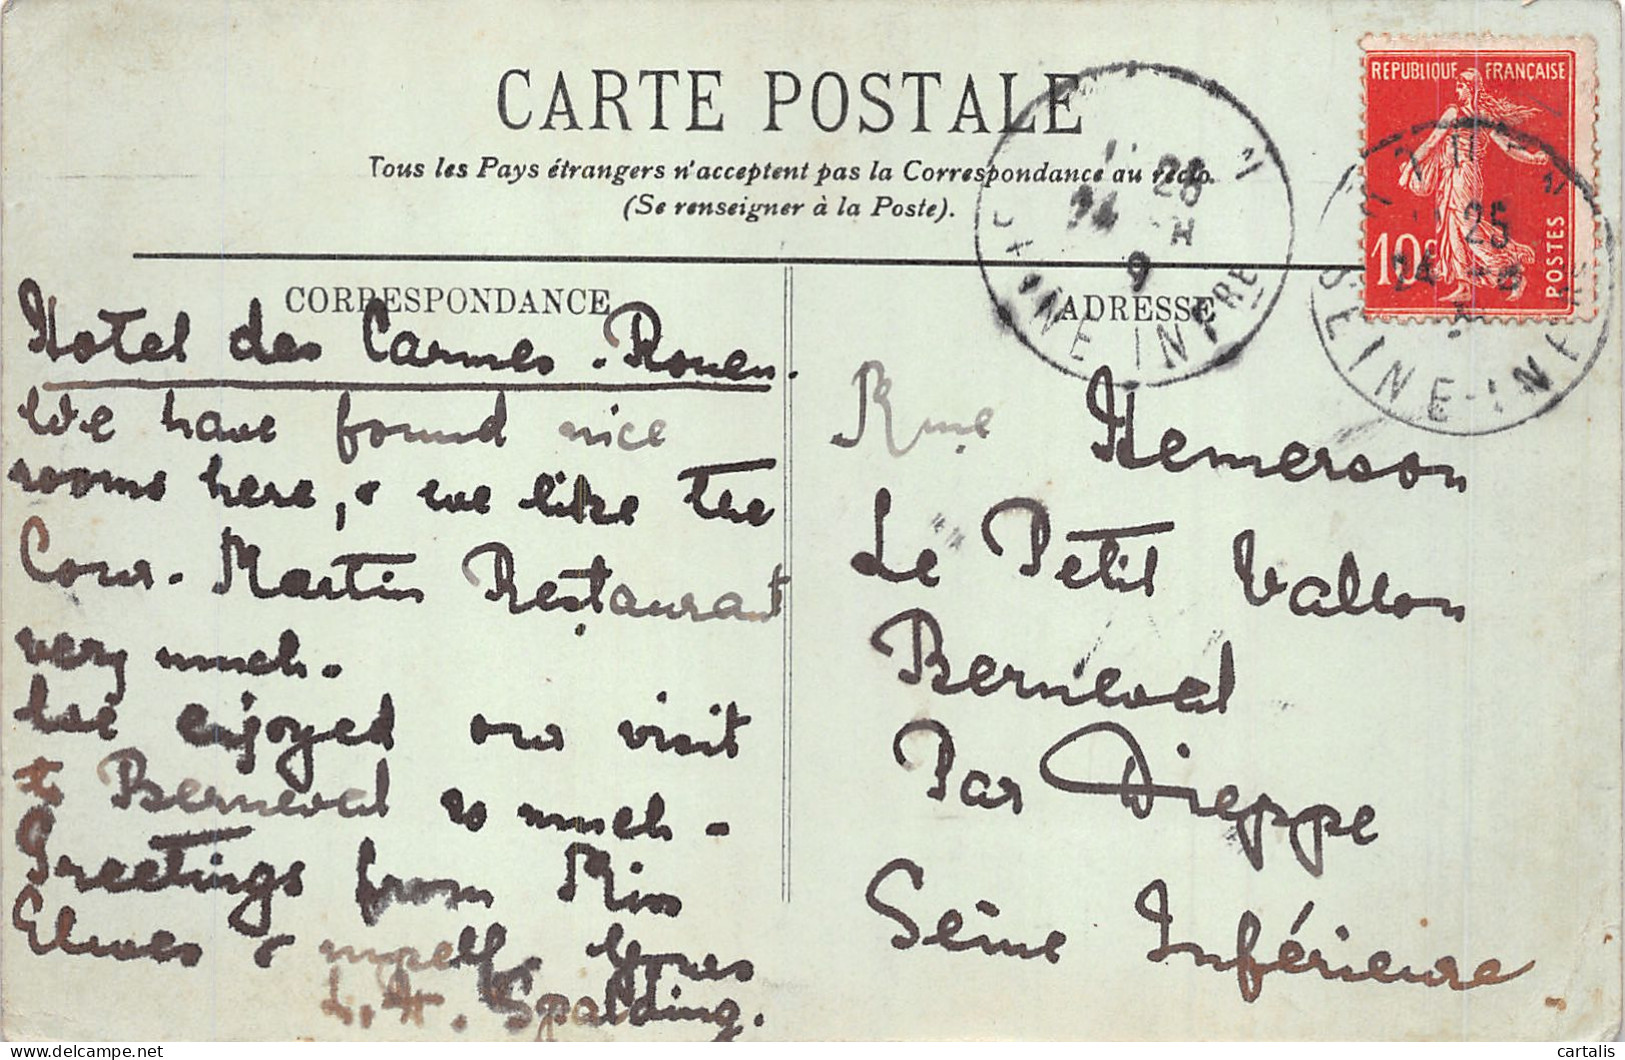 CARTE POSTALE
Tous les Pays étrangers n'acceptent pas la Correspondance au recto.
(Se renseigner à la Poste).
CORRESPONDANCE
Hotel des Carmes. Rouen.
We have found nice
rooms here, & we like the
Cour. Martin Restaurant
very much.
We enjoyed our visit
to Berneval so much.
Greetings from Miss
Elwes & myself. Yours
L. H. Spalding.
ADRESSE
Mme Hemerson
Le Petit Vallon
Berneval
Par Dieppe
Seine Inférieure
REPUBLIQUE FRANÇAISE
10c
POSTES
28
24
9
INFRE
25
24
SEINE-INF
cartalis